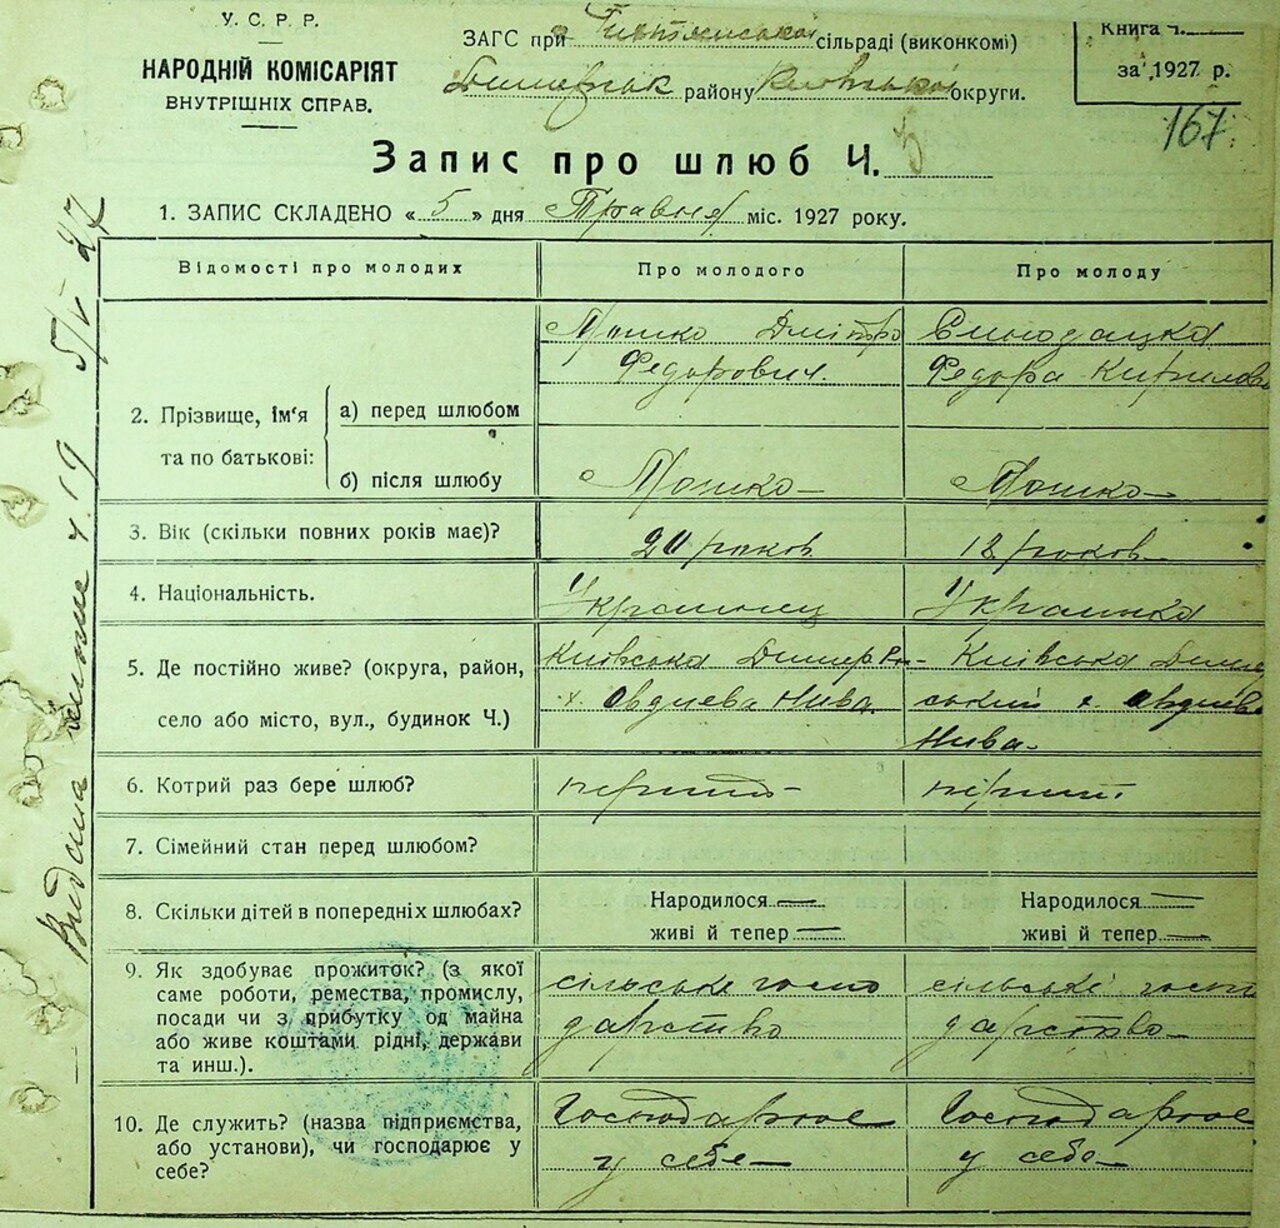 У. С. Р. Р.
НАРОДНІЙ КОМІСАРІЯТ
ВНУТРІШНІХ СПРАВ.
ЗАГС при сільраді (виконкомі)
Димерськ району Київської округи.
Книга Ч.
за 1927 р.
167
Запис про шлюб Ч. 5
1. ЗАПИС СКЛАДЕНО « 5 » дня Травня міс. 1927 року.
Відомості про молодих
Про молодого
Про молоду
2. Прізвище, ім'я та по батькові:
а) перед шлюбом
Мошко Дмітро
Федорович.
Федора Кирилов
б) після шлюбу
Мошко
Мошко
3. Вік (скільки повних років має)?
20 років
18 років
4. Національність.
Українец
Украинка
5. Де постійно живе? (округа, район,
село або місто, вул., будинок Ч.)
Київська Димер Рн-
х. Овдиева Нива
Київська Димер
ський х. Овдиева
Нива
6. Котрий раз бере шлюб?
перший
перший
7. Сімейний стан перед шлюбом?
8. Скільки дітей в попередніх шлюбах?
Народилося —
живі й тепер —
Народилося —
живі й тепер —
9. Як здобуває прожиток? (з якої
саме роботи, ремества, промислу,
посади чи з прибутку од майна
або живе коштами рідні, держави
та инш.).
сільське госпо
дарство
сільські госпо
дарство
10. Де служить? (назва підприємства,
або установи), чи господарює у
себе?
Господарює
у себе
Господарює
у себе
Видана ч. 19 5/V 27